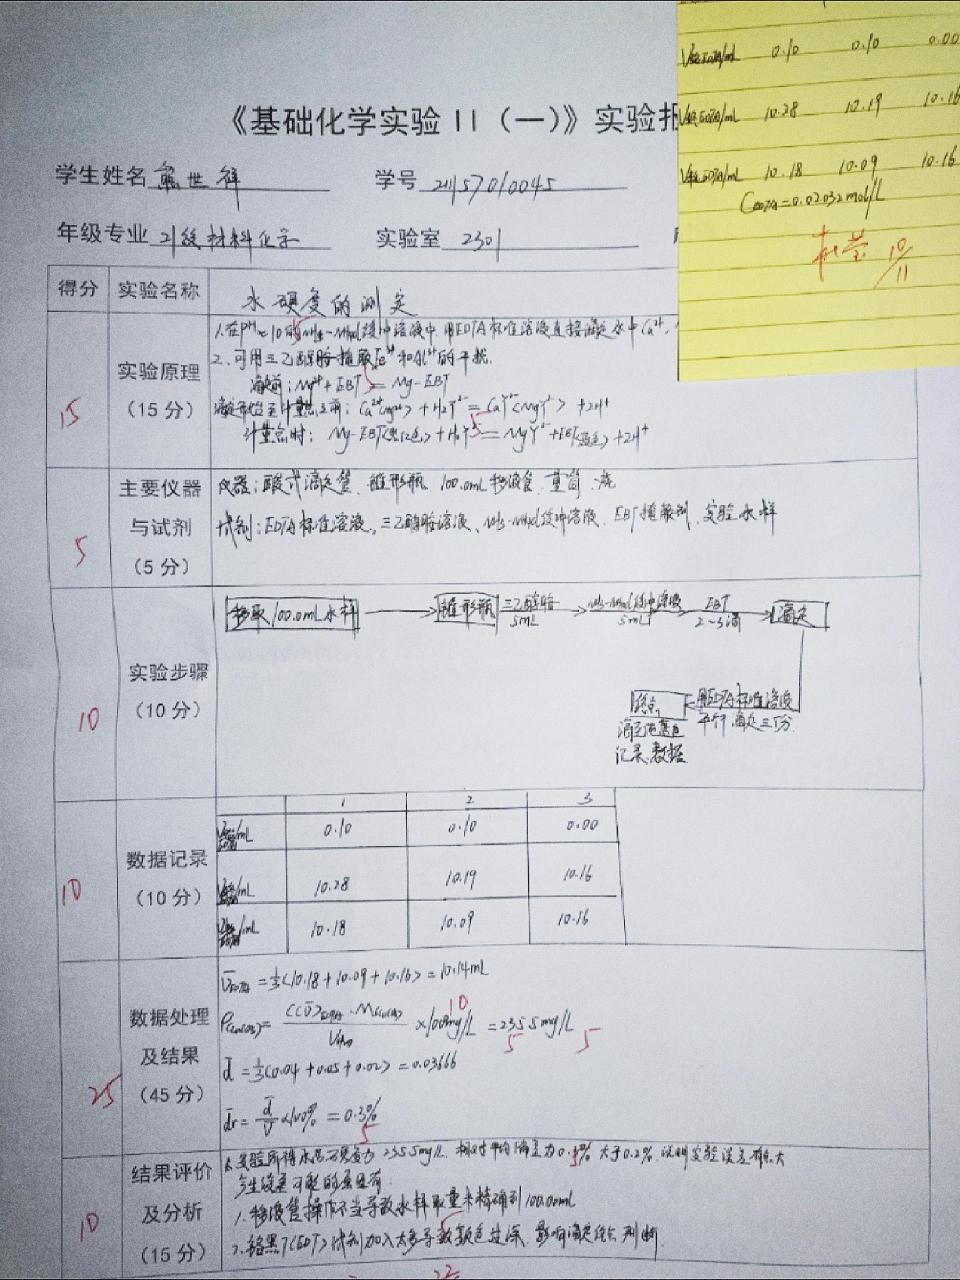 V初EDTA/mL 0.10 0.10 0.00
V终EDTA/mL 10.28 10.19 10.16
V耗EDTA/mL 10.18 10.09 10.16
CEDTA=0.02032mol/L
10/11
《基础化学实验 II（一）》实验报
学生姓名 熊世祥 学号 21157010045
年级专业 21级材料化学 实验室 2301
得分 实验名称 水硬度的测定
实验原理
（15分）
15
1.在pH≈10的NH3-NH4Cl缓冲溶液中,用EDTA标准溶液直接滴定水中Ca2+,
2.可用三乙醇胺掩蔽Fe3+和Al3+的干扰.
滴定前: Mg2+ + EBT = Mg-EBT
滴定开始至计量点前: Ca2+(Mg2+) + H2Y2- = CaY2-(MgY2-) + 2H+
计量点时: Mg-EBT(紫红色) + H2Y2- = MgY2- + EBT(蓝色) + 2H+
5
5
主要仪器
与试剂
（5分）
5
仪器:酸式滴定管、锥形瓶、100.0mL移液管、量筒、
试剂:EDTA标准溶液,三乙醇胺溶液、NH3-NH4Cl缓冲溶液、EBT指示剂、实验水样
实验步骤
（10分）
10
移取100.0mL水样 锥形瓶 三乙醇胺 5mL NH3-NH4Cl缓冲溶液 5mL EBT 2~3滴 滴定
用EDTA标准溶液
平行滴定三份
终点,
记录数据
数据记录
（10分）
10
1 2 3
V初/mL 0.10 0.10 0.00
V终/mL 10.28 10.19 10.16
V耗/mL 10.18 10.09 10.16
数据处理
及结果
（45分）
25
V̄EDTA = 1/3(10.18+10.09+10.16) = 10.14mL
ρ(CaCO3) = (CV̄)EDTA·M(CaCO3)/VH2O ×10 mg/L = 235.5mg/L
10
5
5
d̄ = 1/3(0.04+0.05+0.02) = 0.03666
d̄r = d̄/V̄ ×100% = 0.3%
5
结果评价
及分析
（15分）
10
实验所得水总硬度为235.5mg/L,相对平均偏差为0.3%大于0.2%,说明实验误差较大
产生误差可能的原因有:
1.移液管操作不当导致水样取量未精确到100.00mL
2.铬黑T(EBT)试剂加入太多导致颜色过深,影响滴定终点判断.
5